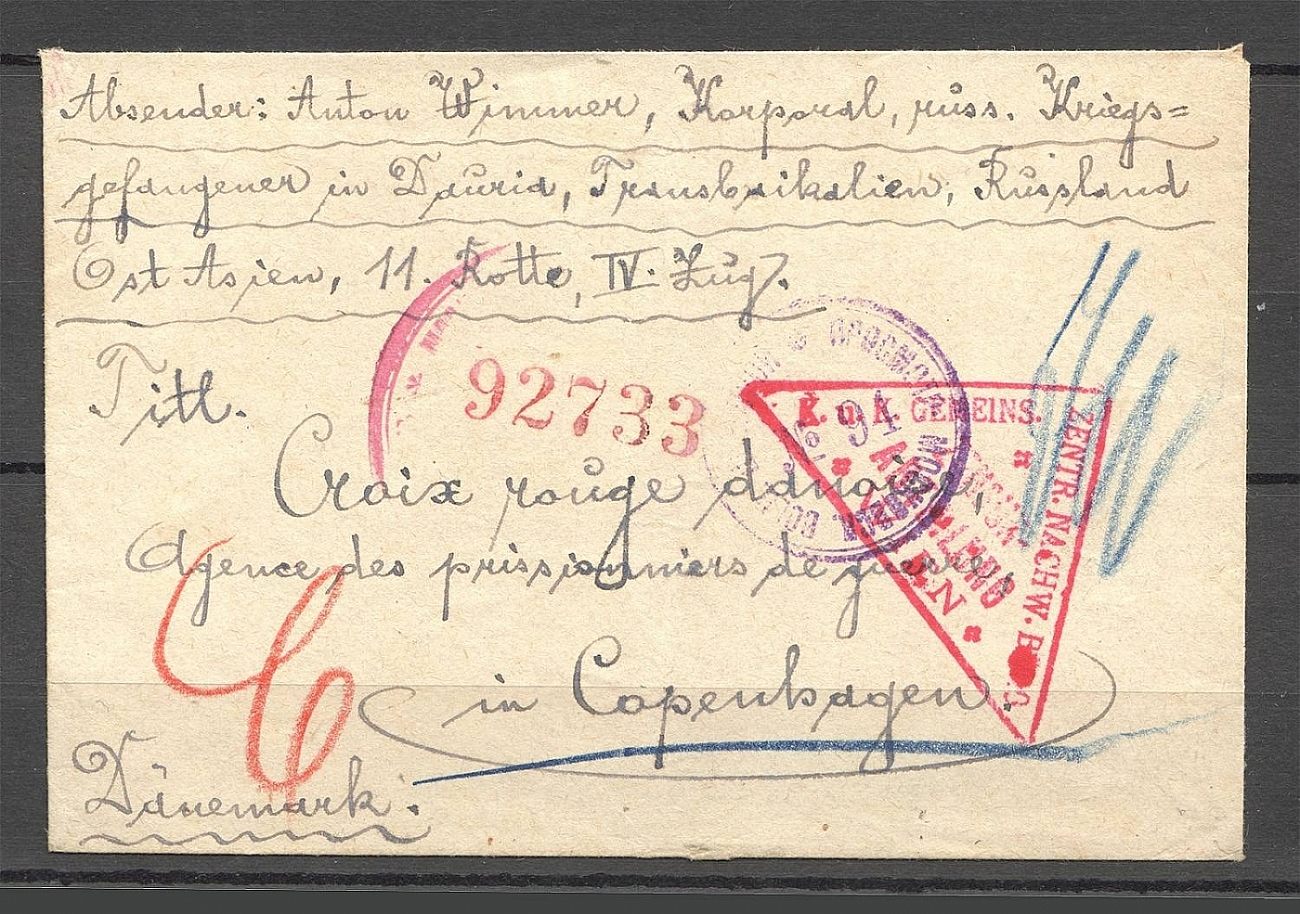 Absender: Anton Wimmer, Korporal, russ. Kriegs=
gefangener in Dauria, Transbaikalien, Russland
Ost Asien, 11. Rotte, IV. Zug.
Titl.
92733
94
K. u. K. GEMEINS.
ZENTR. NACHW.
WIEN
Croix rouge danoise,
Agence des prissionniers de guerre,
in Copenhagen.
Dänemark.